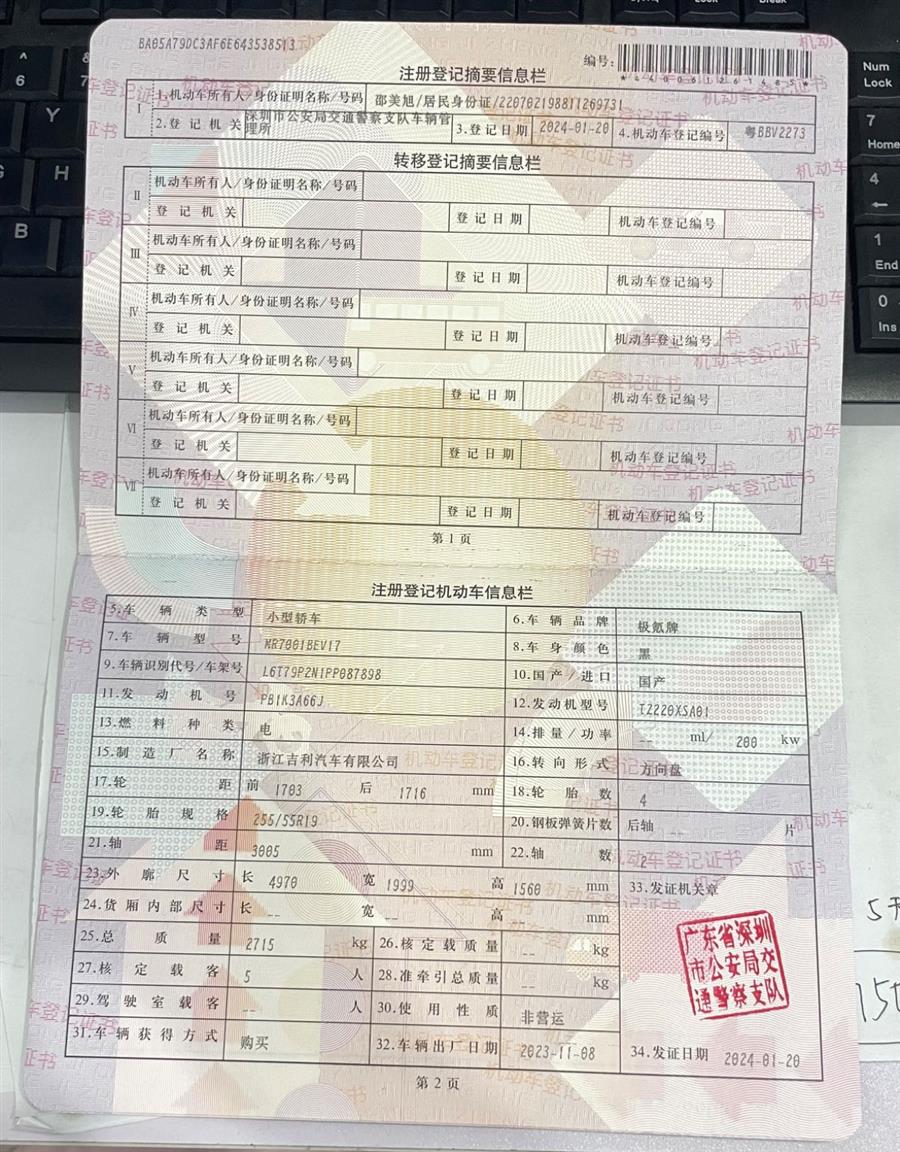 BA05A79DC3AF6E643538513
编号:
注册登记摘要信息栏
Ⅰ 1.机动车所有人/身份证明名称/号码 邵美旭/居民身份证/220702198811269731
2.登记机关 深圳市公安局交通警察支队车辆管理所 3.登记日期 2024-01-20 4.机动车登记编号 粤BBV2273
转移登记摘要信息栏
Ⅱ 机动车所有人/身份证明名称/号码
登记机关 登记日期 机动车登记编号
Ⅲ 机动车所有人/身份证明名称/号码
登记机关 登记日期 机动车登记编号
Ⅳ 机动车所有人/身份证明名称/号码
登记机关 登记日期 机动车登记编号
Ⅴ 机动车所有人/身份证明名称/号码
登记机关 登记日期 机动车登记编号
Ⅵ 机动车所有人/身份证明名称/号码
登记机关 登记日期 机动车登记编号
Ⅶ 机动车所有人/身份证明名称/号码
登记机关 登记日期 机动车登记编号
第1页
注册登记机动车信息栏
5.车辆类型 小型轿车 6.车辆品牌 极氪牌
7.车辆型号 MR7001BEV17 8.车身颜色 黑
9.车辆识别代号/车架号 L6T79P2N1PP087898 10.国产/进口 国产
11.发动机号 PB1K3A66J 12.发动机型号 TZ220XSA01
13.燃料种类 电 14.排量/功率 -- ml/ 200 kw
15.制造厂名称 浙江吉利汽车有限公司 16.转向形式 方向盘
17.轮距 前 1703 后 1716 mm 18.轮胎数 4
19.轮胎规格 255/55R19 20.钢板弹簧片数 后轴 -- 片
21.轴距 3005 mm 22.轴数 2
23.外廓尺寸 长 4970 宽 1999 高 1560 mm 33.发证机关章
24.货厢内部尺寸 长 -- 宽 -- 高 -- mm
25.总质量 2715 kg 26.核定载质量 -- kg
27.核定载客 5 人 28.准牵引总质量 -- kg
29.驾驶室载客 -- 人 30.使用性质 非营运
31.车辆获得方式 购买 32.车辆出厂日期 2023-11-08 34.发证日期 2024-01-20
广东省深圳
市公安局交
通警察支队
第2页
6
Y
H
B
Num
Lock
7
Home
4
←
1
End
0
Ins